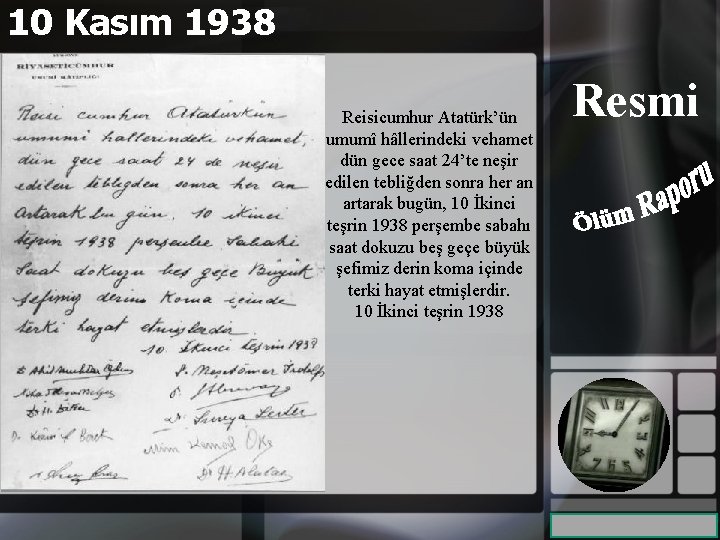 10 Kasım 1938
RİYASETİCÜMHUR
UMUMÎ KÂTİPLİĞİ
Reisi cumhur Atatürkün
umumî hallerindeki vehamet,
dün gece saat 24'te neşir
edilen tebliğden sonra her an
Artarak bu gün, 10 ikinci
teşrin 1938 perşembe Sabahı
Saat dokuzu beş geçe Büyük
şefimiz derin Koma içinde
terki hayat etmişlerdir.
10 İkinci teşrin 1938
Reisicumhur Atatürk’ün
umumî hâllerindeki vehamet
dün gece saat 24’te neşir
edilen tebliğden sonra her an
artarak bugün, 10 İkinci
teşrin 1938 perşembe sabahı
saat dokuzu beş geçe büyük
şefimiz derin koma içinde
terki hayat etmişlerdir.
10 İkinci teşrin 1938
Resmi
Ölüm Raporu